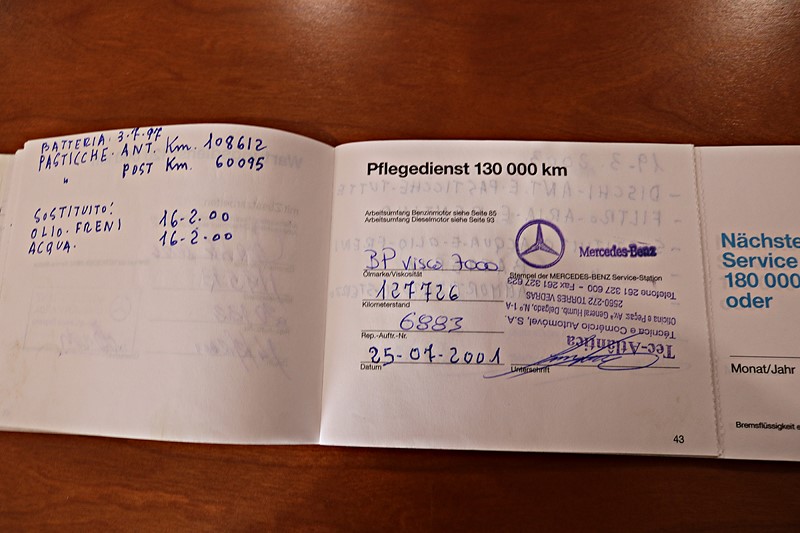 BATTERIA. 3.7.97
PASTICCHE. ANT. Km. 108612
" POST Km. 60095
SOSTITUITO:
OLIO. FRENI 16-2.00
ACQUA. 16-2.00
Pflegedienst 130 000 km
Arbeitsumfang Benzinmotor siehe Seite 85
Arbeitsumfang Dieselmotor siehe Seite 93
BP VISCO 7000
Ölmarke/Viskosität
127726
Kilometerstand
6883
Rep.-Auftr.-Nr.
25-07-2001
Datum
Mercedes-Benz
Stempel der MERCEDES-BENZ Service-Station
Tec-Atlântica
Técnica e Comércio Automóvel, S.A.
Oficina e Peças: Av. General Humb. Delgado, N.º 1-A
2560-272 TORRES VEDRAS
Telefone 261 327 600 - Fax 261 327 623
Unterschrift
43
Nächste
Service
180 000
oder
Monat/Jahr
Bremsflüssigkeit e